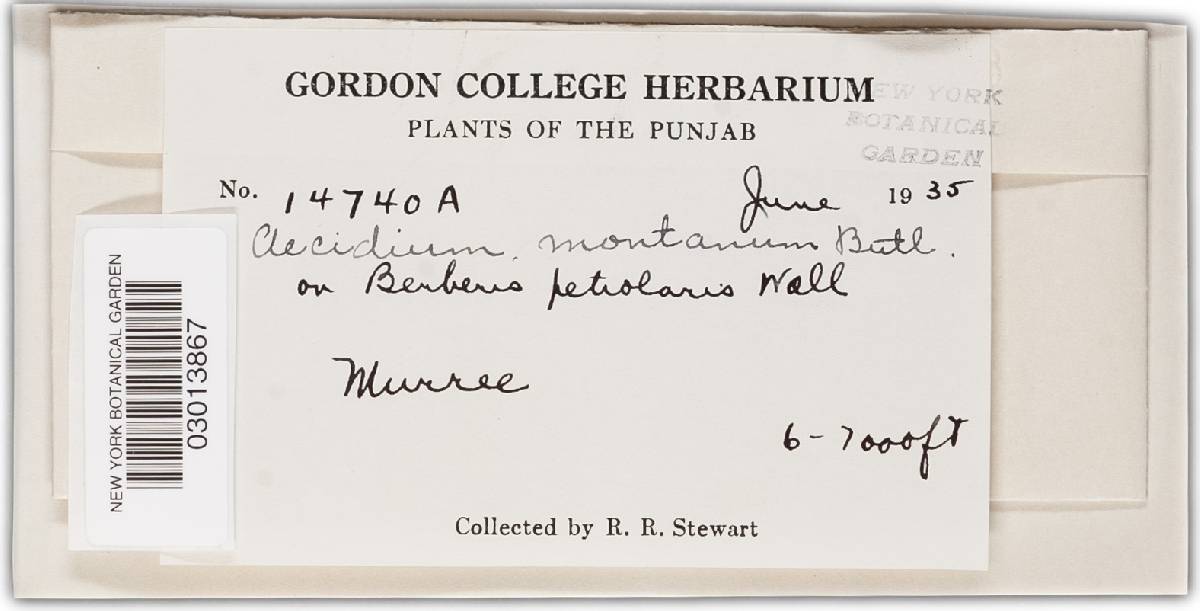 GORDON COLLEGE HERBARIUM
PLANTS OF THE PUNJAB
NEW YORK
BOTANICAL
GARDEN
No. 14740 A June 1935
Aecidium montanum Butl.
on Berberis petiolaris Wall
Murree
6-7000ft
Collected by R. R. Stewart
NEW YORK BOTANICAL GARDEN
03013867